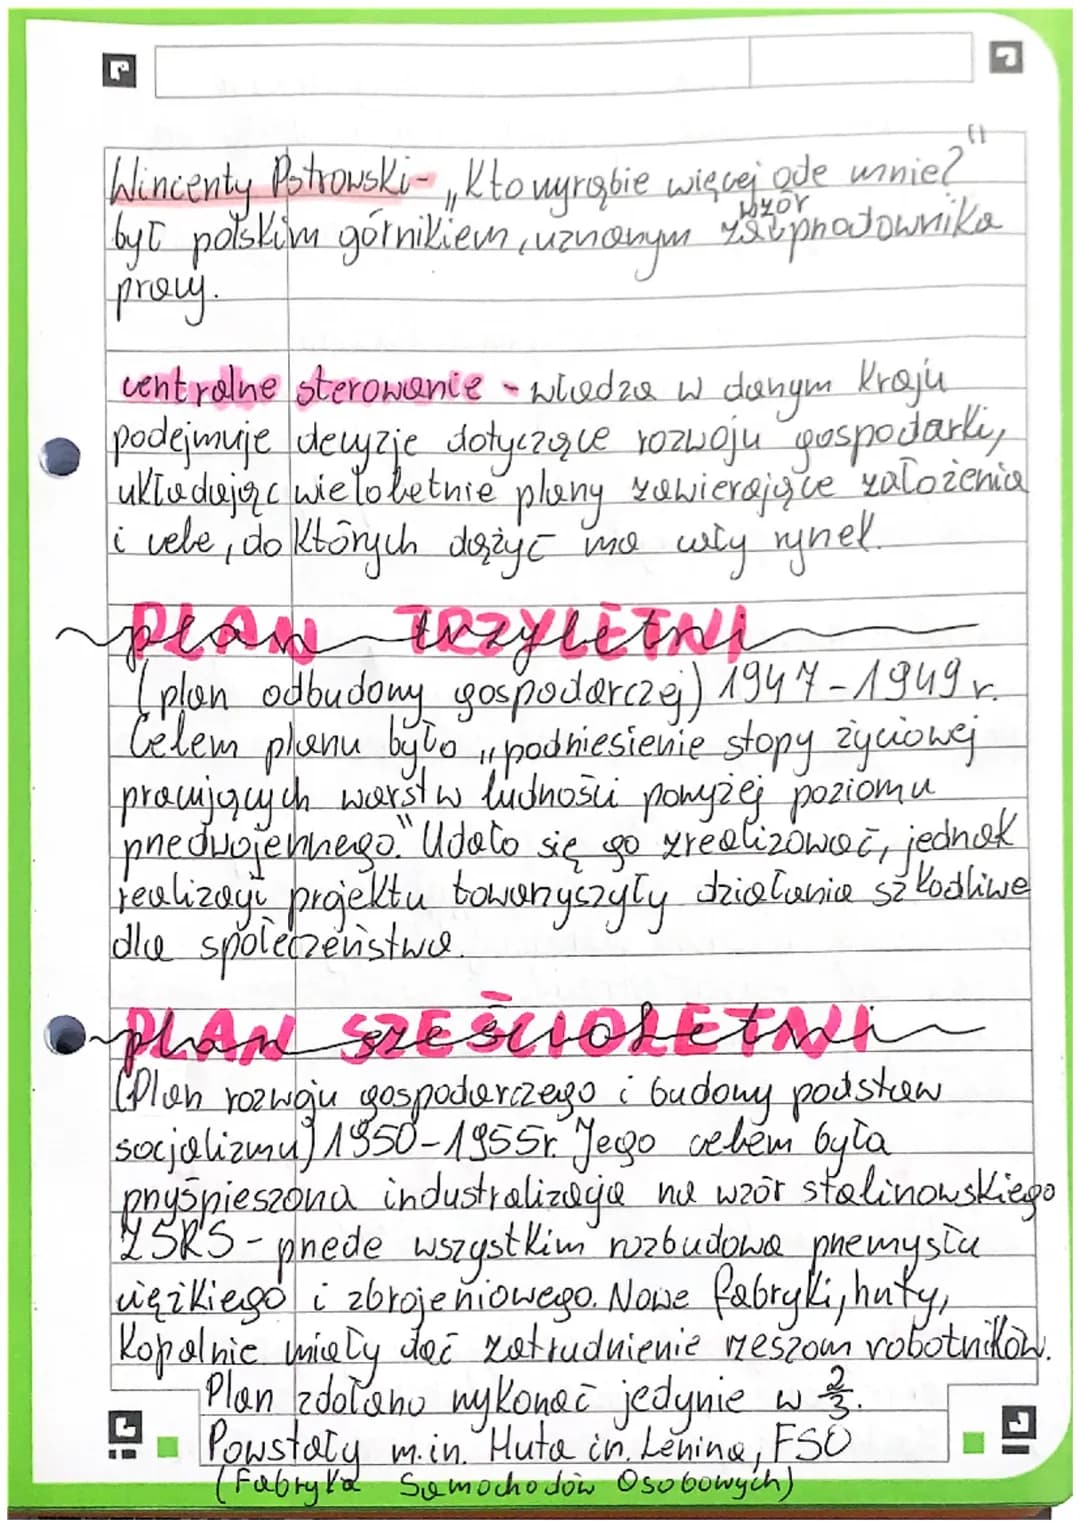 Wincenty Pstrowski - „Kto wyrąbie więcej ode mnie?"
był polskim górnikiem, uznanym za wzór przodownika
pracy.
centralne sterowanie - władza w danym kraju
podejmuje decyzje dotyczące rozwoju gospodarki,
układając wieloletnie plany zawierające założenia
i cele, do których dążyć ma cały rynek.
PLAN TRZYLETNI
(plan odbudowy gospodarczej) 1947-1949 r.
Celem planu było „podniesienie stopy życiowej
pracujących warstw ludności powyżej poziomu
przedwojennego." Udało się go zrealizować, jednak
realizacji projektu towarzyszyły działania szkodliwe
dla społeczeństwa.
PLAN SZEŚCIOLETNI
(Plan rozwoju gospodarczego i budowy podstaw
socjalizmu) 1950-1955r. Jego celem była
przyśpieszona industralizacja na wzór stalinowskiego
ZSRS - przede wszystkim rozbudowa przemysłu
ciężkiego i zbrojeniowego. Nowe fabryki, huty,
kopalnie miały dać zatrudnienie rzeszom robotników.
Plan zdołano wykonać jedynie w 2/3.
Powstały m.in. Huta im. Lenina, FSO
(Fabryka Samochodów Osobowych)